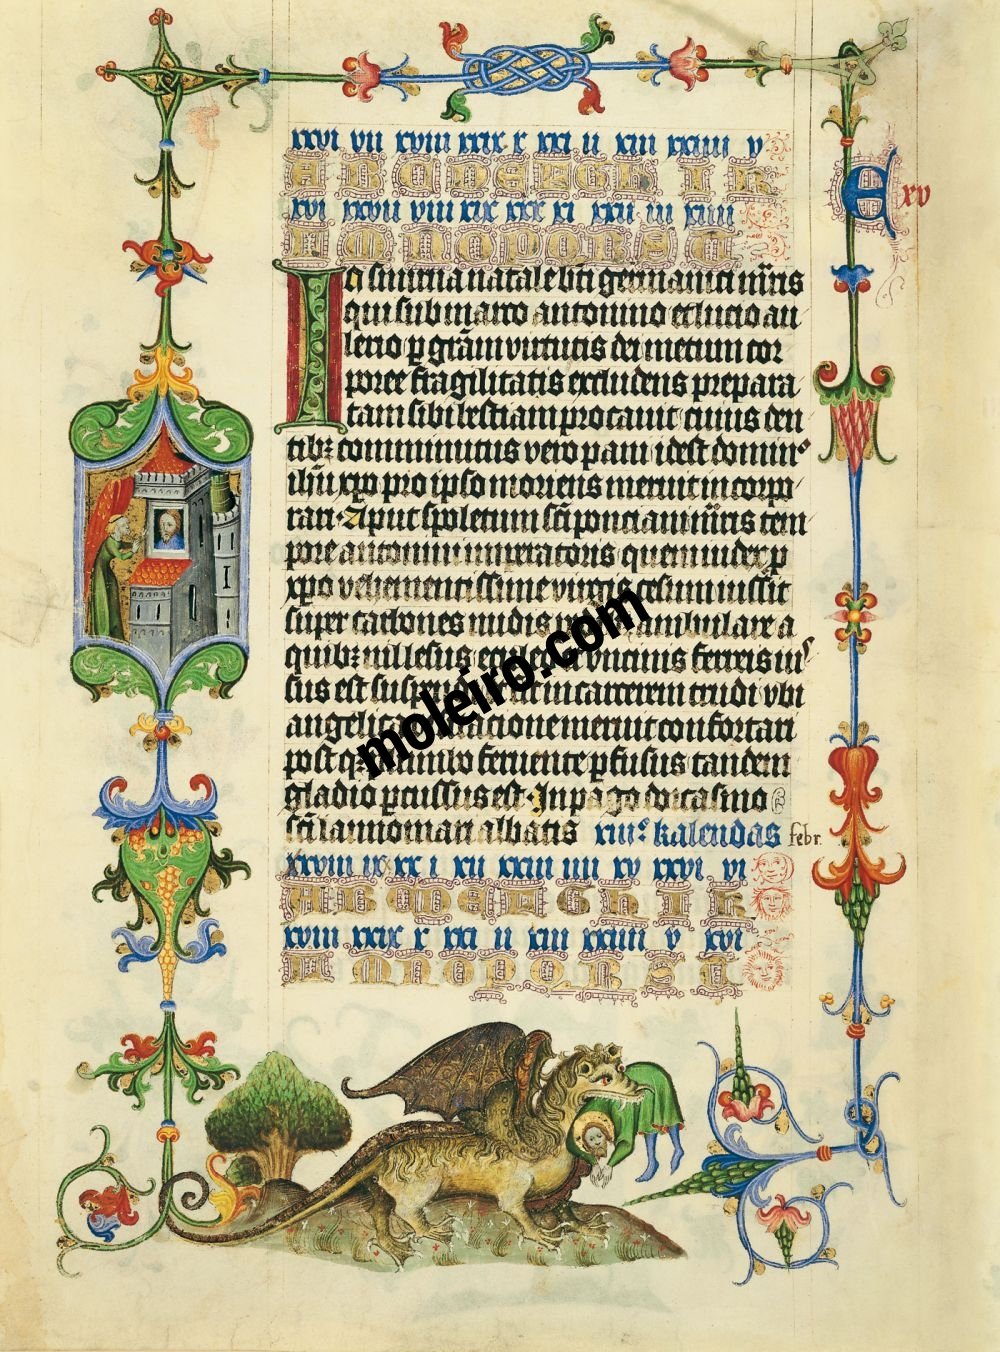 xxvi vii xviii xxix x xxi ii xiii xxiiii v
A B C D E F G H I K
xvi xxvii viii xix xxx xi xxii iii xiiii
M N O P Q R S T
E xv
In smirna natale bti germanici mr̄is
qui sub marco antonino et lucio au
relio p grām virtutis dei metum cor
poree fragilitatis excludens prepara
tam sibi bestiam procauit cuius den
tibꝫ comminutus vero pani idest domino
ihū xpo pro ipso moriens meruit incorpo
rari Aput spoletum scī ponciani mr̄is tem
pore antonini imperatoris quem iudex p
xpo vehementissime virgis cesum iussit
super carbones nudis ambulare a
quibꝫ nil lesus eculeo et vncinis ferreis ius
sus est suspendi trudi vbi
angelica meruit confortari
post q feruente pfusus tandem
gladio pcussus est In pago dorcasino
scī launomari abbatis xiiii kalendas febr.
xxviii ix xx i xii xxiii iiii xv xxvi vi
A B C D E F G H I K
xviii xxix x xxi ii xiii xxiiii v xvi
M N O P Q R S T
moleiro.com